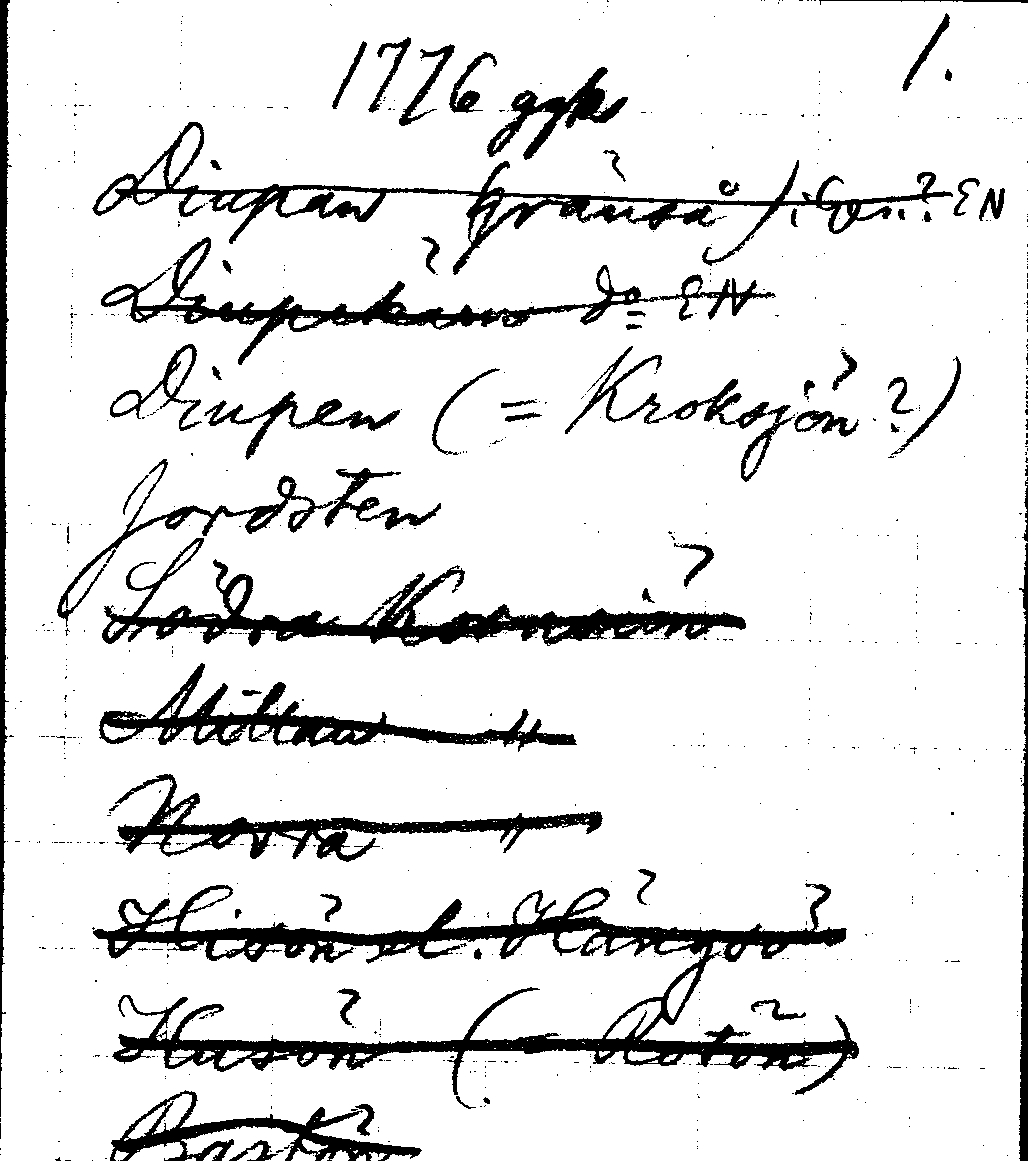 1776 ggks 1.
Diupan gränså) : Gr..? EN
Diupekärn do EN
Diupen (= Kroksjön?)
Jordsten
Södra Kornsiön
Mellan "
Norra "
Hisön el. Hängsö
Husön (= Rotön)
Bastön